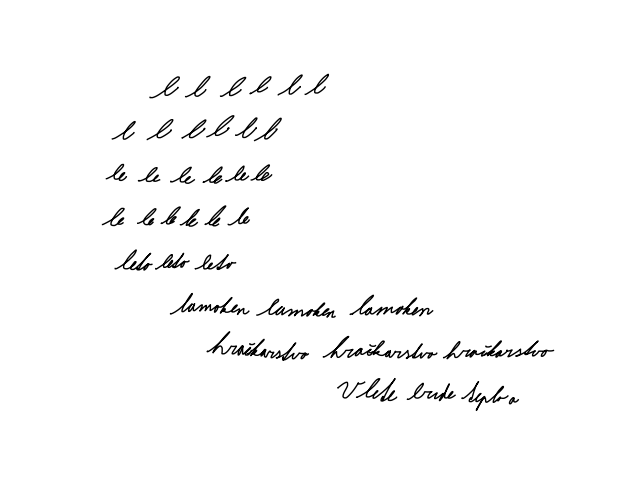 l l l l l l
l l l l l l
le le le le le le
le le le le le le
leto leto leto
lamohen lamohen lamohen
hračkarstvo hračkarstvo hračkarstvo
V lete bude teplo a